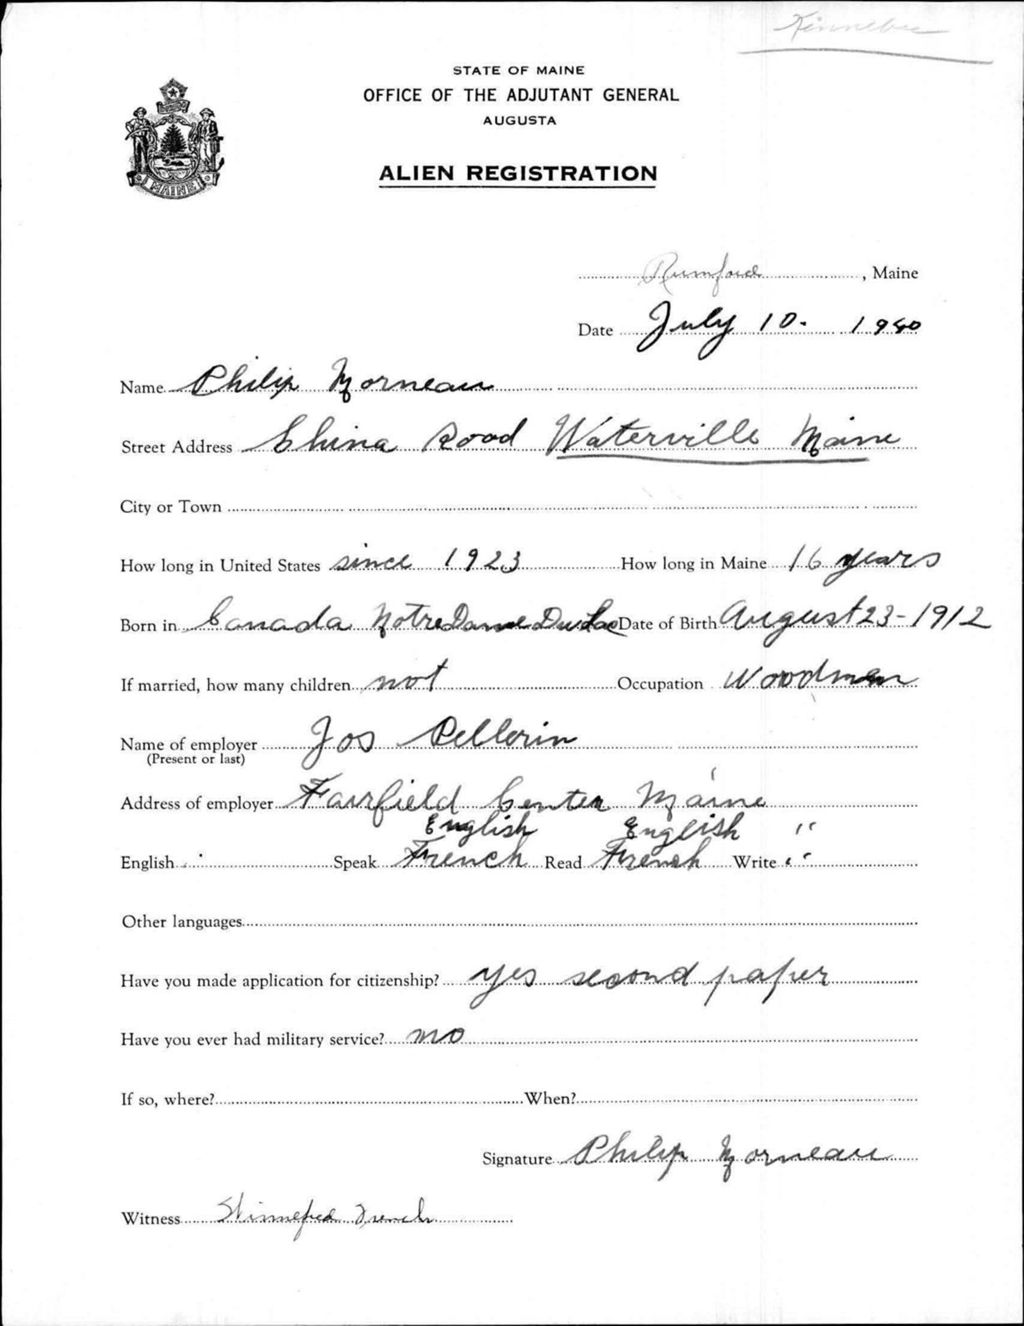 Kinnebec
STATE OF MAINE
OFFICE OF THE ADJUTANT GENERAL
AUGUSTA
ALIEN REGISTRATION
MAINE
Rumford, Maine
Date July 10. 1940
Name Philip Morneau
Street Address China Road Waterville Maine
City or Town
How long in United States since 1923 How long in Maine 16 years
Born in Canada Notre Dame Du Lac Date of Birth August 23-1912
If married, how many children not Occupation Woodman
Name of employer Jos Pellerin
(Present or last)
Address of employer Fairfield Center Maine
English English "
English Speak French Read French Write "
Other languages
Have you made application for citizenship? yes second paper
Have you ever had military service? no
If so, where? When?
Signature Philip Morneau
Witness Winnefred French